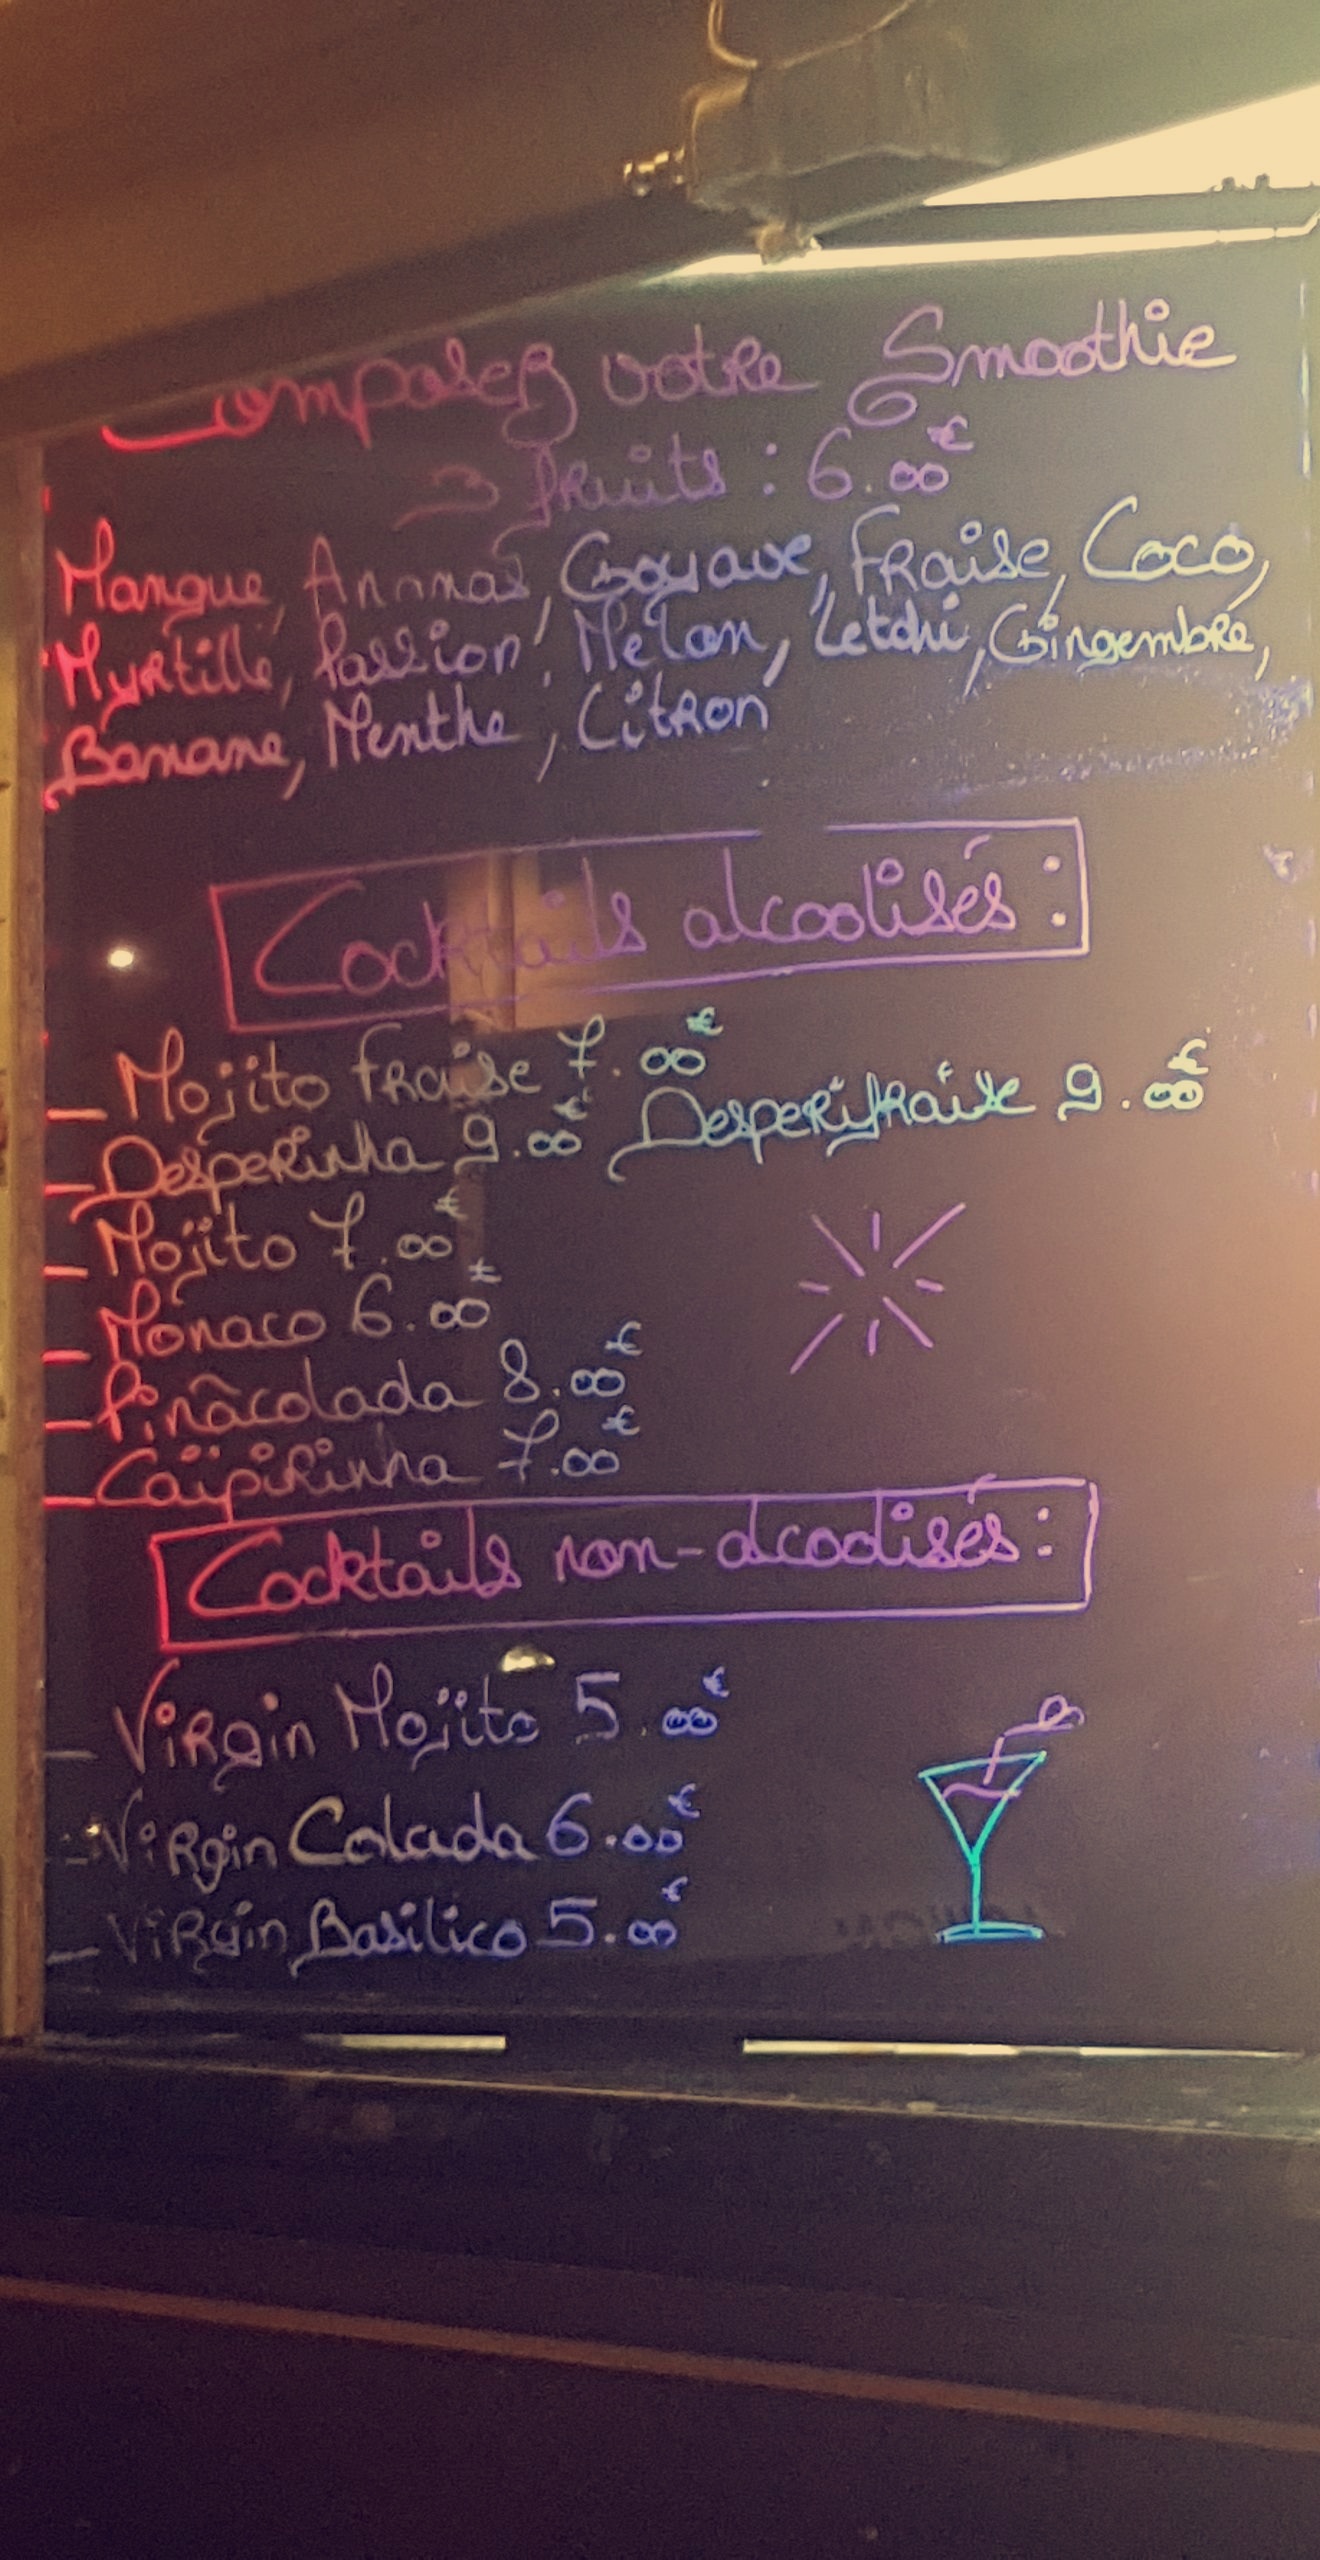 Composez votre Smoothie
3 fruits : 6.00€
Mangue, Ananas, Goyave, Fraise, Coco,
Myrtille, Passion, Melon, Letchi, Gingembre,
Banane, Menthe, Citron
Cocktails alcoolisés :
_ Mojito fraise 7.00€
_ Desperinha 9.00€ Desperifraise 9.00€
_ Mojito 7.00€
_ Monaco 6.00€
_ Pinâcolada 8.00€
_ Caïpirinha 7.00€
Cocktails non-alcoolisés :
_ Virgin Mojito 5.00€
_ Virgin Colada 6.00€
_ Virgin Basilico 5.00€